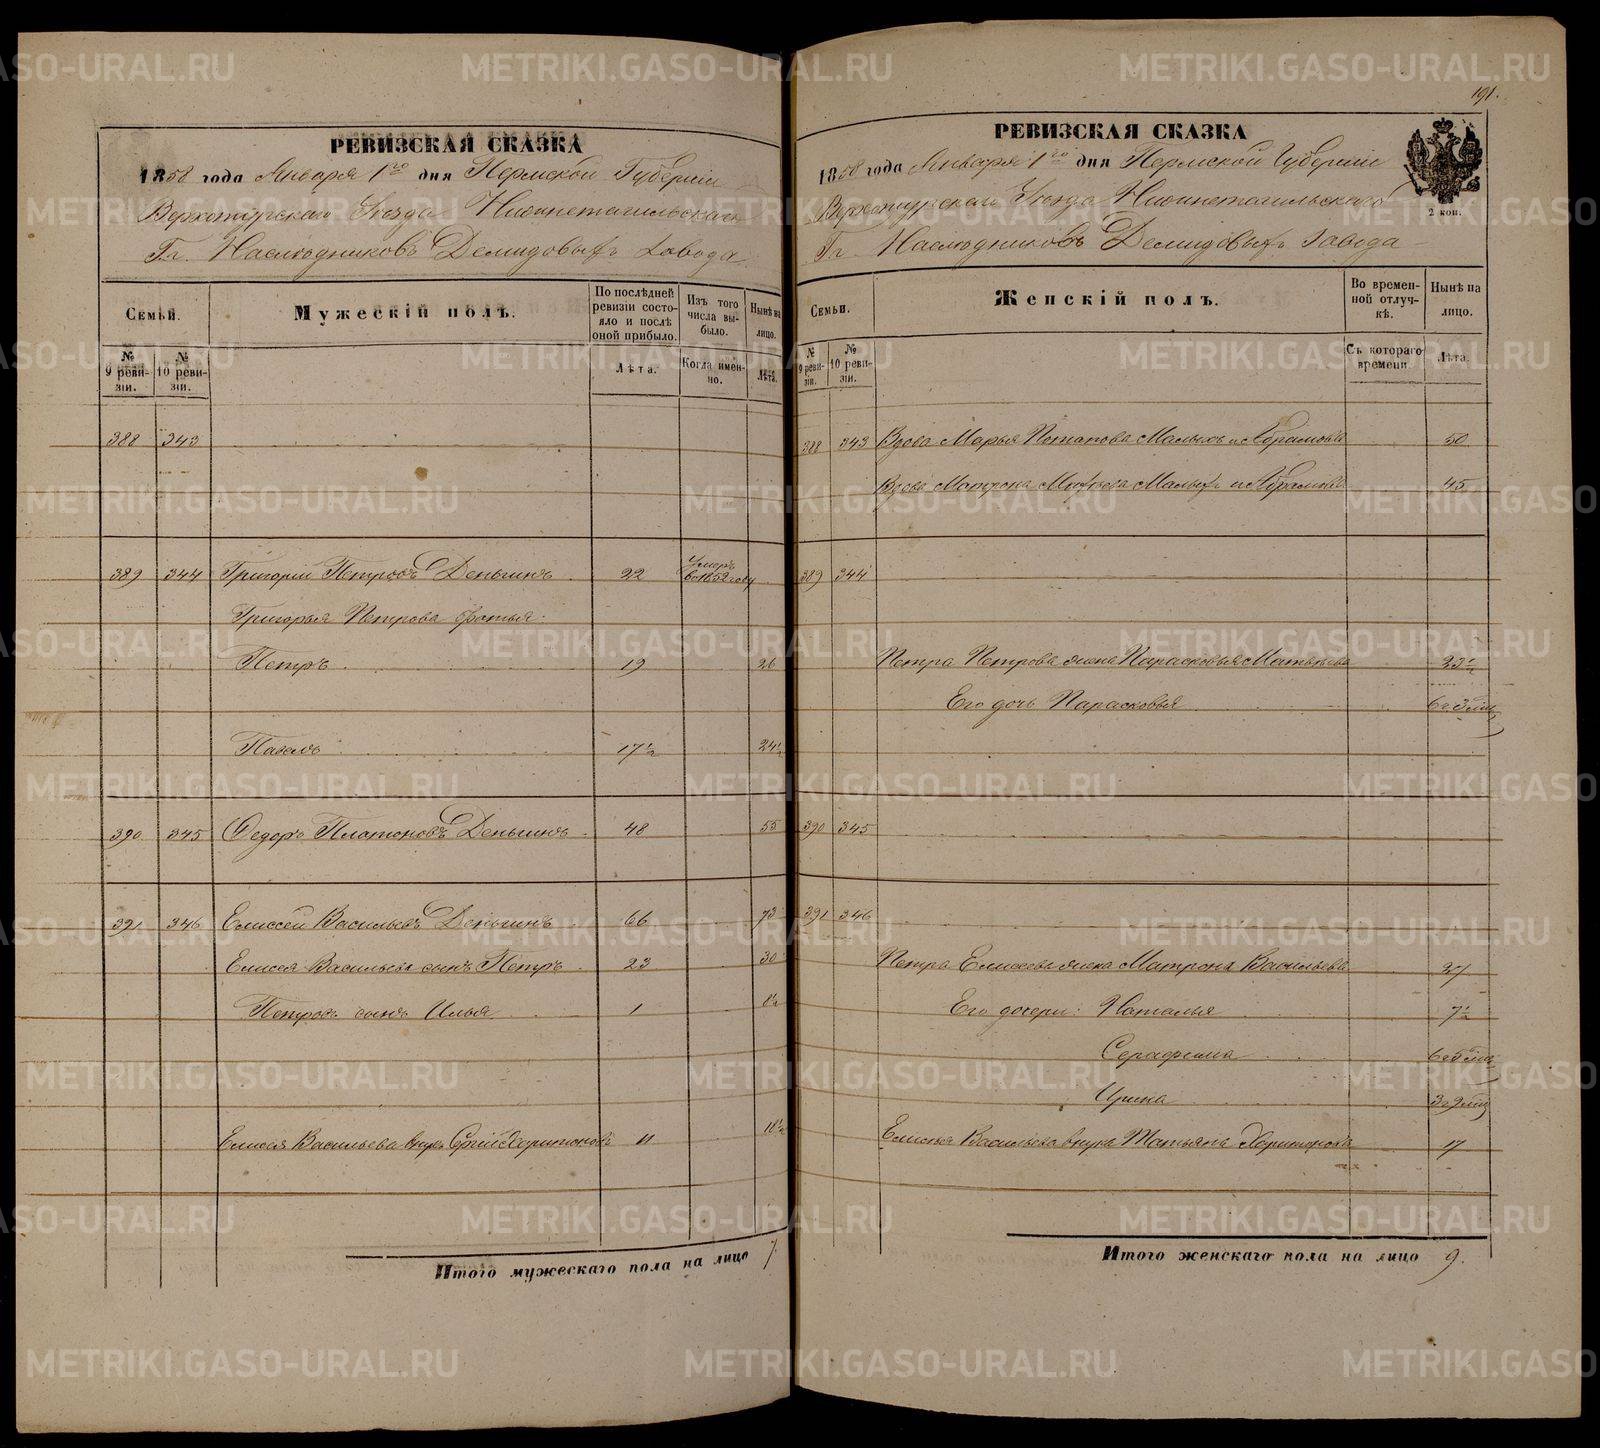 191.
РЕВИЗСКАЯ СКАЗКА
1858 года Января 1го дня Пермской Губернии
Верхотурскаго Уезда Нижнетагильскаго
Гг. Наследниковъ Демидовыхъ Завода
Семьи.
№ 9 ревизіи.
№ 10 ревизіи.
Мужескій полъ.
По послѣдней ревизіи состояло и послѣ оной прибыло.
Лѣта.
Изъ того числа выбыло.
Когда именно.
Нынѣ на лицо.
Лѣта.
388 343
389 344 Григорій Петровъ Деньгинъ 22 Умеръ въ 1852 году
Григорья Петрова братья:
Петръ 19 26
Павелъ 17½ 24½
390 345 Федоръ Платоновъ Деньгинъ 48 55
391 346 Елиссей Васильевъ Деньгинъ 66 73
Елисея Васильева сынъ Петръ 23 30
Петровъ сынъ Илья 1 8½
Елисея Васильева внукъ Сергій Харитоновъ 11 18½
Итого мужескаго пола на лицо 7
РЕВИЗСКАЯ СКАЗКА
1858 года Января 1го дня Пермской Губерніи
Верхотурскаго Уезда Нижнетагильскаго
Гг. Наследниковъ Демидовыхъ Завода
2 коп.
Семьи.
№ 9 ревизіи.
№ 10 ревизіи.
Женскій полъ.
Во временной отлучкѣ.
Съ котораго времени.
Нынѣ на лицо.
Лѣта.
388 343 Вдова Марья Потапова Малыхъ и Абрамова 50
Вдова Матрена Малыхъ и Абрамова 45
389 344
Петра Петрова жена Парасковья Матвѣева 23½
Его дочь Парасковья 6 г 3 мѣс
390 345
391 346
Петра Елисеева жена Матрона Васильева 27
Его дочери: Наталья 7½
Серафима 6 г 5 мѣс
Ирина 3 г 9 мѣс
Елисѣя Васильева внука Татьяна Харитонова 17
Итого женскаго пола на лицо 9.
METRIKI.GASO-URAL.RU